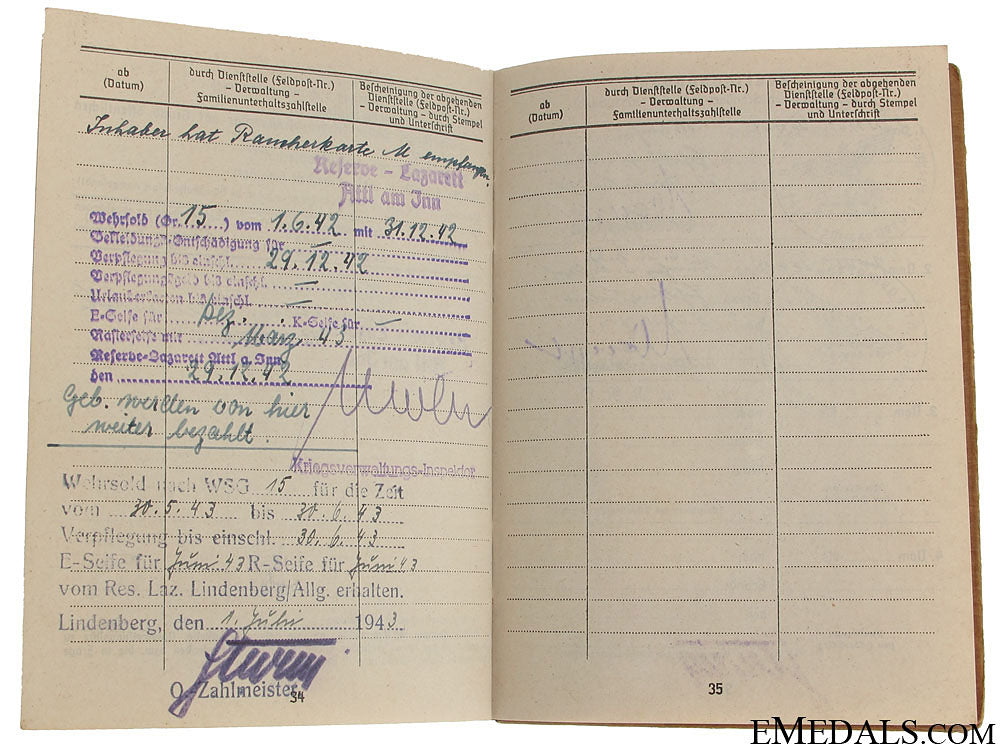 ab
(Datum)
durch Dienststelle (Feldpost-Nr.)
– Verwaltung –
Familienunterhaltszahlstelle
Bescheinigung der abgehenden
Dienststelle (Feldpost-Nr.)
– Verwaltung – durch Stempel
und Unterschrift
Inhaber hat Raucherkarte M empfangen.
Reserve – Lazarett
Attl am Inn
Wehrsold (Gr. 15 ) vom 1.6.42 mit 31.12.42
Bekleidungs-Entschädigung für —
Verpflegung bis einschl. 29.12.42
Verpflegungsgeld bis einschl. —
Urlauberkarten bis einschl. —
E-Seife für Dez. K-Seife für —
Rasierseife mit März 43
Reserve-Lazarett Attl a. Inn
den 29.12.42
Geb. werden von hier
weiter bezahlt.
Kriegsverwaltungs-Inspektor
Wehrsold nach WSG 15 für die Zeit
vom 30.5.43 bis 30.6.43
Verpflegung bis einschl. 30.6.43
E-Seife für Juni 43 R-Seife für Juni 43
vom Res. Laz. Lindenberg/Allg. erhalten.
Lindenberg, den 1. Juli 1943
O. Zahlmeister
34
ab
(Datum)
durch Dienststelle (Feldpost-Nr.)
– Verwaltung –
Familienunterhaltszahlstelle
Bescheinigung der abgehenden
Dienststelle (Feldpost-Nr.)
– Verwaltung – durch Stempel
und Unterschrift
35
EMEDALS.COM